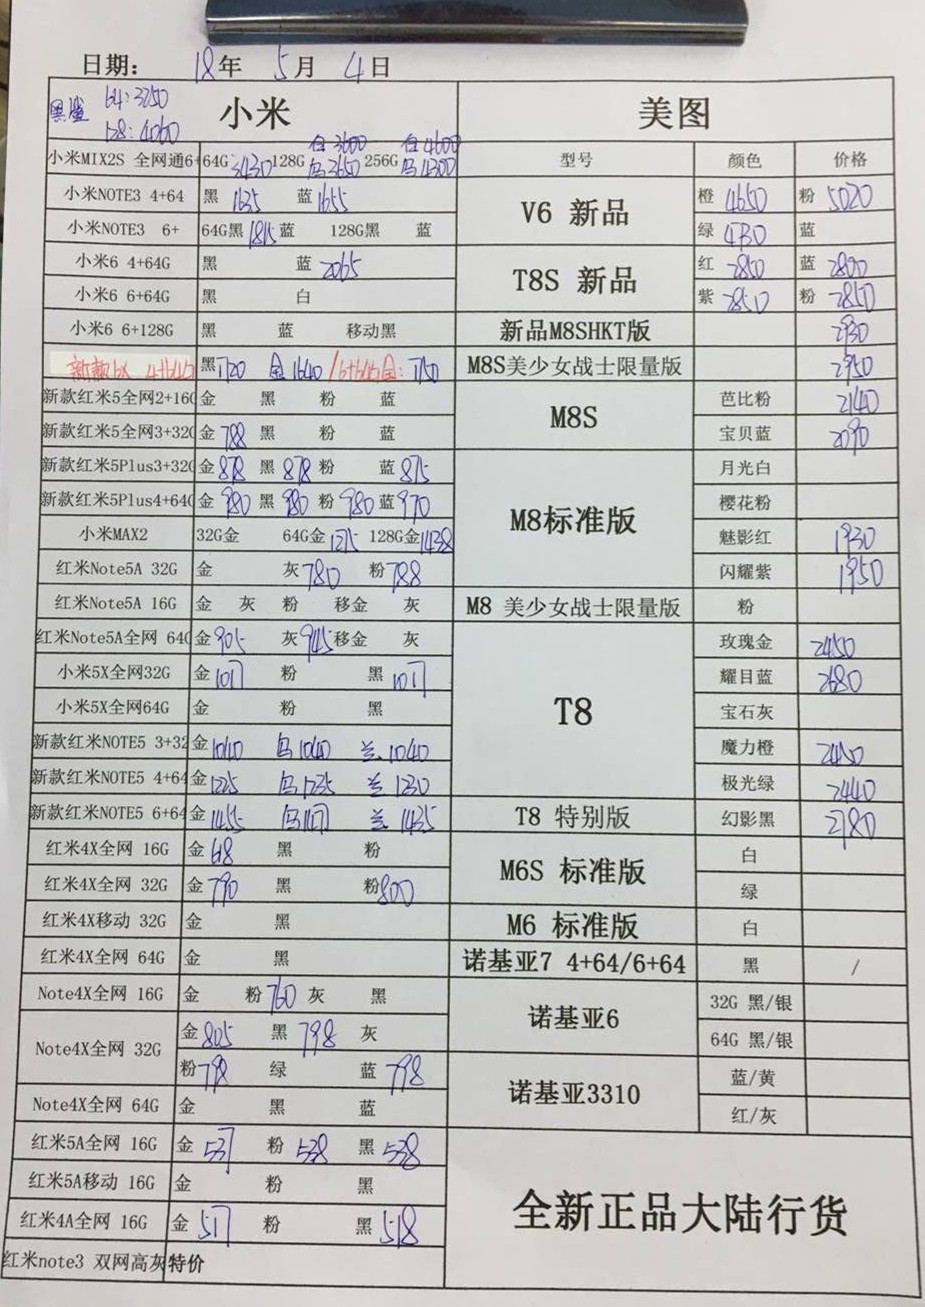 日期: 18年 5月 4日
黑鲨 64:3250
128:4060
小米
美图
小米MIX2S 全网通6+ 64G:3430 128G 白3600 乌3650 256G 白4600 乌4300
型号 颜色 价格
小米NOTE3 4+64 黑 1635 蓝1655
V6 新品 橙 4650 粉 5020
小米NOTE3 6+ 64G黑 1815 蓝 128G黑 蓝
绿 4730 蓝
小米6 4+64G 黑 蓝 2065
T8S 新品 红 2850 蓝 2800
小米6 6+64G 黑 白
紫 2850 粉 2850
小米6 6+128G 黑 蓝 移动黑
新品M8SHKT版 2930
新款6X 4+64G 黑1720 金1640
M8S美少女战士限量版 2950
新款红米5全网2+16G 金 黑 粉 蓝
M8S 芭比粉 2140
新款红米5全网3+32G 金788 黑 粉 蓝
宝贝蓝 2090
新款红米5Plus3+32G 金878 黑 878 粉 蓝875
M8标准版 月光白
新款红米5Plus4+64G 金 980 黑 980 粉 980 蓝970
樱花粉
小米MAX2 32G金 64G金1275 128G金1438
魅影红 1930
红米Note5A 32G 金 灰780 粉788
闪耀紫 1950
红米Note5A 16G 金 灰 粉 移金 灰
M8 美少女战士限量版 粉
红米Note5A全网 64G 金905 灰945 移金 灰
T8 玫瑰金 2450
小米5X全网32G 金1017 粉 黑 1017
耀目蓝 2680
小米5X全网64G 金 粉 黑
宝石灰
新款红米NOTE5 3+32 金1040 乌1040 兰1040
魔力橙 2450
新款红米NOTE5 4+64 金1225 乌1235 兰1230
极光绿 2440
新款红米NOTE5 6+64 金1455 兰1435
T8 特别版 幻影黑 2780
红米4X全网 16G 金618 黑 粉
M6S 标准版 白
红米4X全网 32G 金790 黑 粉800
绿
红米4X移动 32G 金 黑
M6 标准版 白
红米4X全网 64G 金 黑
诺基亚7 4+64/6+64 黑 /
Note4X全网 16G 金 粉760 灰 黑
诺基亚6 32G 黑/银
Note4X全网 32G 金805 黑 798 灰
64G 黑/银
粉798 绿 蓝 798
诺基亚3310 蓝/黄
Note4X全网 64G 金 黑 蓝
红/灰
红米5A全网 16G 金 537 粉 538 黑 538
红米5A移动 16G 金 粉 黑
全新正品大陆行货
红米4A全网 16G 金 517 粉 黑 518
红米note3 双网高灰 特价